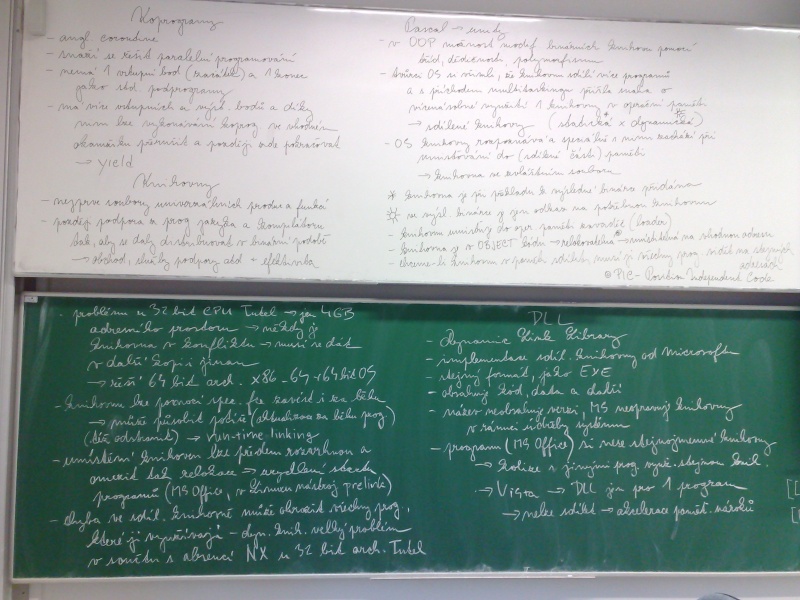 Koprogramy
- angl. coroutine
- snaží se řešit paralelní programování
- nemá 1 vstupní bod (začátek) a 1 konec
jako std. podprogramy
- má více vstupních a výst. bodů a díky
nim lze vykonávání koprog. ve vhodném
okamžiku přerušit a později zde pokračovat
→ yield
Knihovny
- nejprve soubory univerzálních procedur a funkcí
- později podpora z prog. jazyka a kompilátoru
tak, aby se daly distribuovat v binární podobě
→ obchod, služby podpory atd. + efektivita
Pascal → unity
- v OOP možnost modif. binárních knihoven pomocí
tříd, dědičnosti, polymorfismu
- tvůrci OS si všimli, že knihovnu sdílí více programů
a s příchodem multitaskingu přišla snaha o
vícenásobné využití 1 knihovny v operační paměti
→ sdílené knihovny (statická* x dynamická**)
- OS knihovny rozpoznává a speciálně s nimi zachází při
umisťování do (sdílené části) paměti
→ knihovna ve zvláštním souboru
* knihovna je při překladu k výsledné binárce přidána
** ve výsl. binárce je jen odkaz na potřebnou knihovnu
- knihovnu umisťuje do oper. paměti zavaděč (loader)
- knihovna je v OBJECT kódu → relokovatelná → umístitelná na vhodnou adresu
- chceme-li knihovnu v paměti sdílet musí ji všechny prog. vidět na stejných
adresách
PIC - Position Independent Code
- problém u 32 bit CPU Intel → jen 4GB
adresního prostoru → někdy je
knihovna v konfliktu → musí se dát
v další kopii jinam
→ řeší 64 bit arch. x86-64 + 64 bit OS
- knihovnu lze pomocí spec. fce zavést i za běhu
→ může působit potíže (aktualizace za běhu prog.)
(též odstranit) → run-time linking
- umístění knihoven lze předem rozvrhnout a
omezit tak relokace → urychlení startu
programů (MS Office, v Linuxu nástroj prelink)
- chyba ve sdíl. knihovně může ohrozit všechny prog.,
které ji využívají - dyn. knih. velký problém
v součtu s absencí NX u 32 bit arch. Intel
DLL
- Dynamic Link Library
- implementace sdíl. knihovny od Microsoft
- stejný formát, jako EXE
- obsahuje kód, data a další
- název neobsahuje verzi, MS neopravuje knihovny
v rámci údržby systému
- program (MS Office) si nese stejnojmenné knihovny
→ kolize s jinými prog. využ. stejnou knih.
→ Vista → DLL jen pro 1 program
→ nelze sdílet → akcelerace paměť. nároků